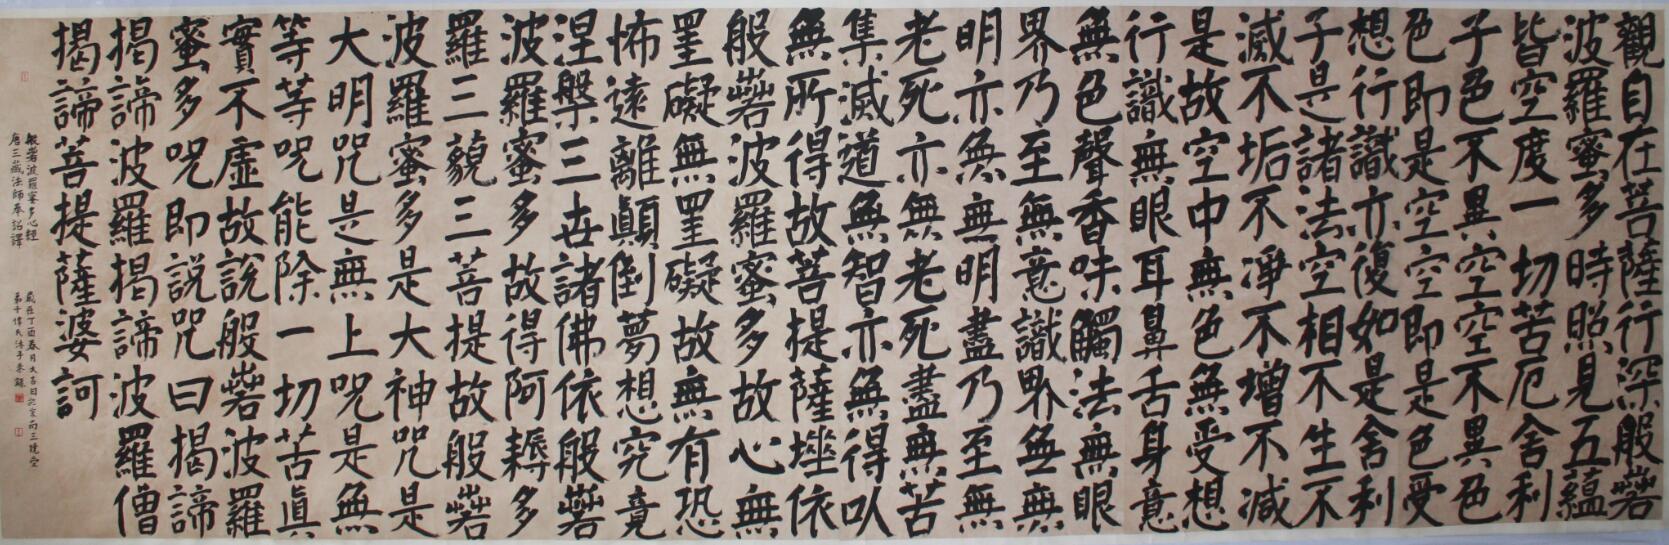 觀自在菩薩行深般若
波羅蜜多時照見五蘊
皆空度一切苦厄舍利
子色不異空空不異色
色即是空空即是色受
想行識亦復如是舍利
子是諸法空相不生不
滅不垢不淨不增不減
是故空中無色無受想
行識無眼耳鼻舌身意
無色聲香味觸法無眼
界乃至無意識界無無
明亦無無明盡乃至無
老死亦無老死盡無苦
集滅道無智亦無得以
無所得故菩提薩埵依
般若波羅蜜多故心無
罣礙無罣礙故無有恐
怖遠離顛倒夢想究竟
涅槃三世諸佛依般若
波羅蜜多故得阿耨多
羅三藐三菩提故般若
波羅蜜多是大神咒是
大明咒是無上咒是無
等等咒能除一切苦真
實不虛故說般若波羅
蜜多咒即說咒曰揭諦
揭諦波羅揭諦波羅僧
揭諦菩提薩婆訶
般若波羅蜜多心經
唐三藏法師奉詔譯
歲在丁酉春月大吉日
弟子